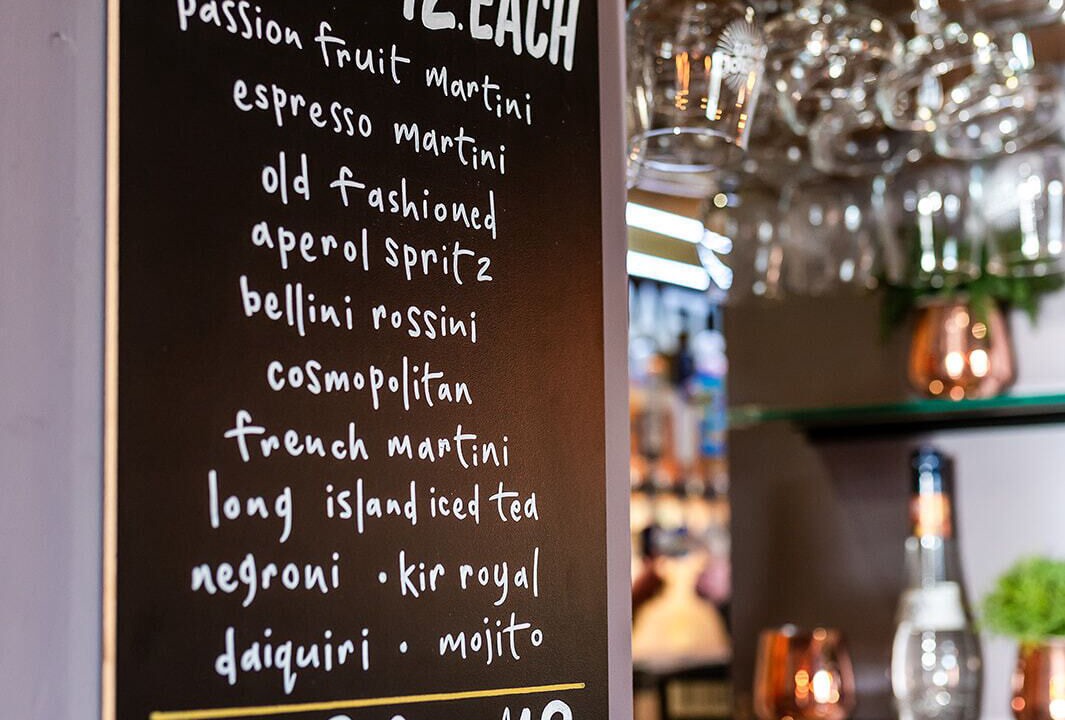 12. EACH
passion fruit martini
espresso martini
old fashioned
aperol spritz
bellini rossini
cosmopolitan
french martini
long island iced tea
negroni • kir royal
daiquiri • mojito